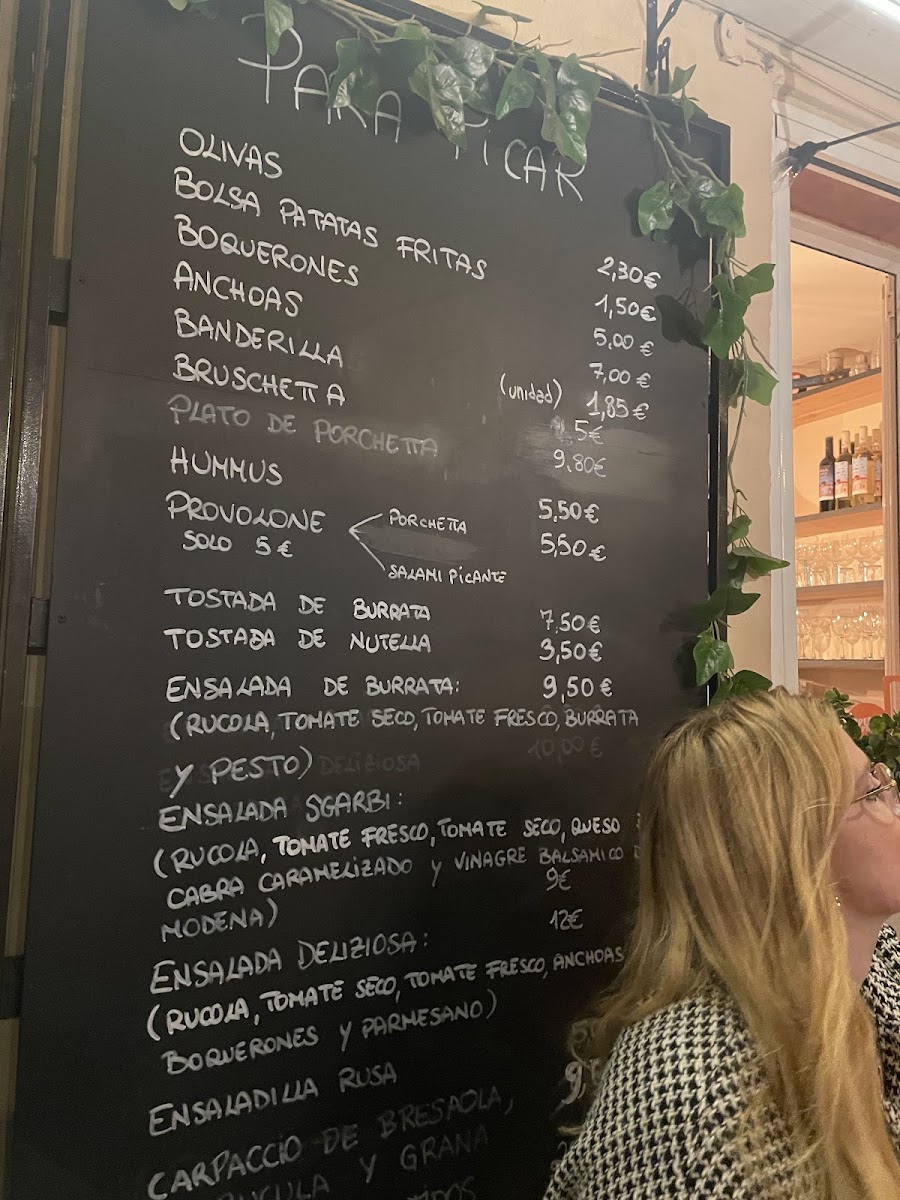 PARA PICAR
OLIVAS 2,30€
BOLSA PATATAS FRITAS 1,50€
BOQUERONES 5,00 €
ANCHOAS 7,00 €
BANDERILLA (unidad) 1,85€
BRUSCHETTA 5€
PLATO DE PORCHETTA 9,80€
HUMMUS 5,50€
PROVOLONE PORCHETTA 5,50€
SOLO 5€ SALAMI PICANTE
TOSTADA DE BURRATA 7,50€
TOSTADA DE NUTELLA 3,50€
ENSALADA DE BURRATA: 9,50€
(RUCOLA, TOMATE SECO, TOMATE FRESCO, BURRATA
Y PESTO) DELIZIOSA 10,00 €
ENSALADA SGARBI:
(RUCOLA, TOMATE FRESCO, TOMATE SECO, QUESO
CABRA CARAMELIZADO Y VINAGRE BALSAMICO
MODENA) 9€
ENSALADA DELIZIOSA: 12€
(RUCOLA, TOMATE SECO, TOMATE FRESCO, ANCHOAS
BOQUERONES Y PARMESANO)
ENSALADILLA RUSA
CARPACCIO DE BRESAOLA,
RUCULA Y GRANA